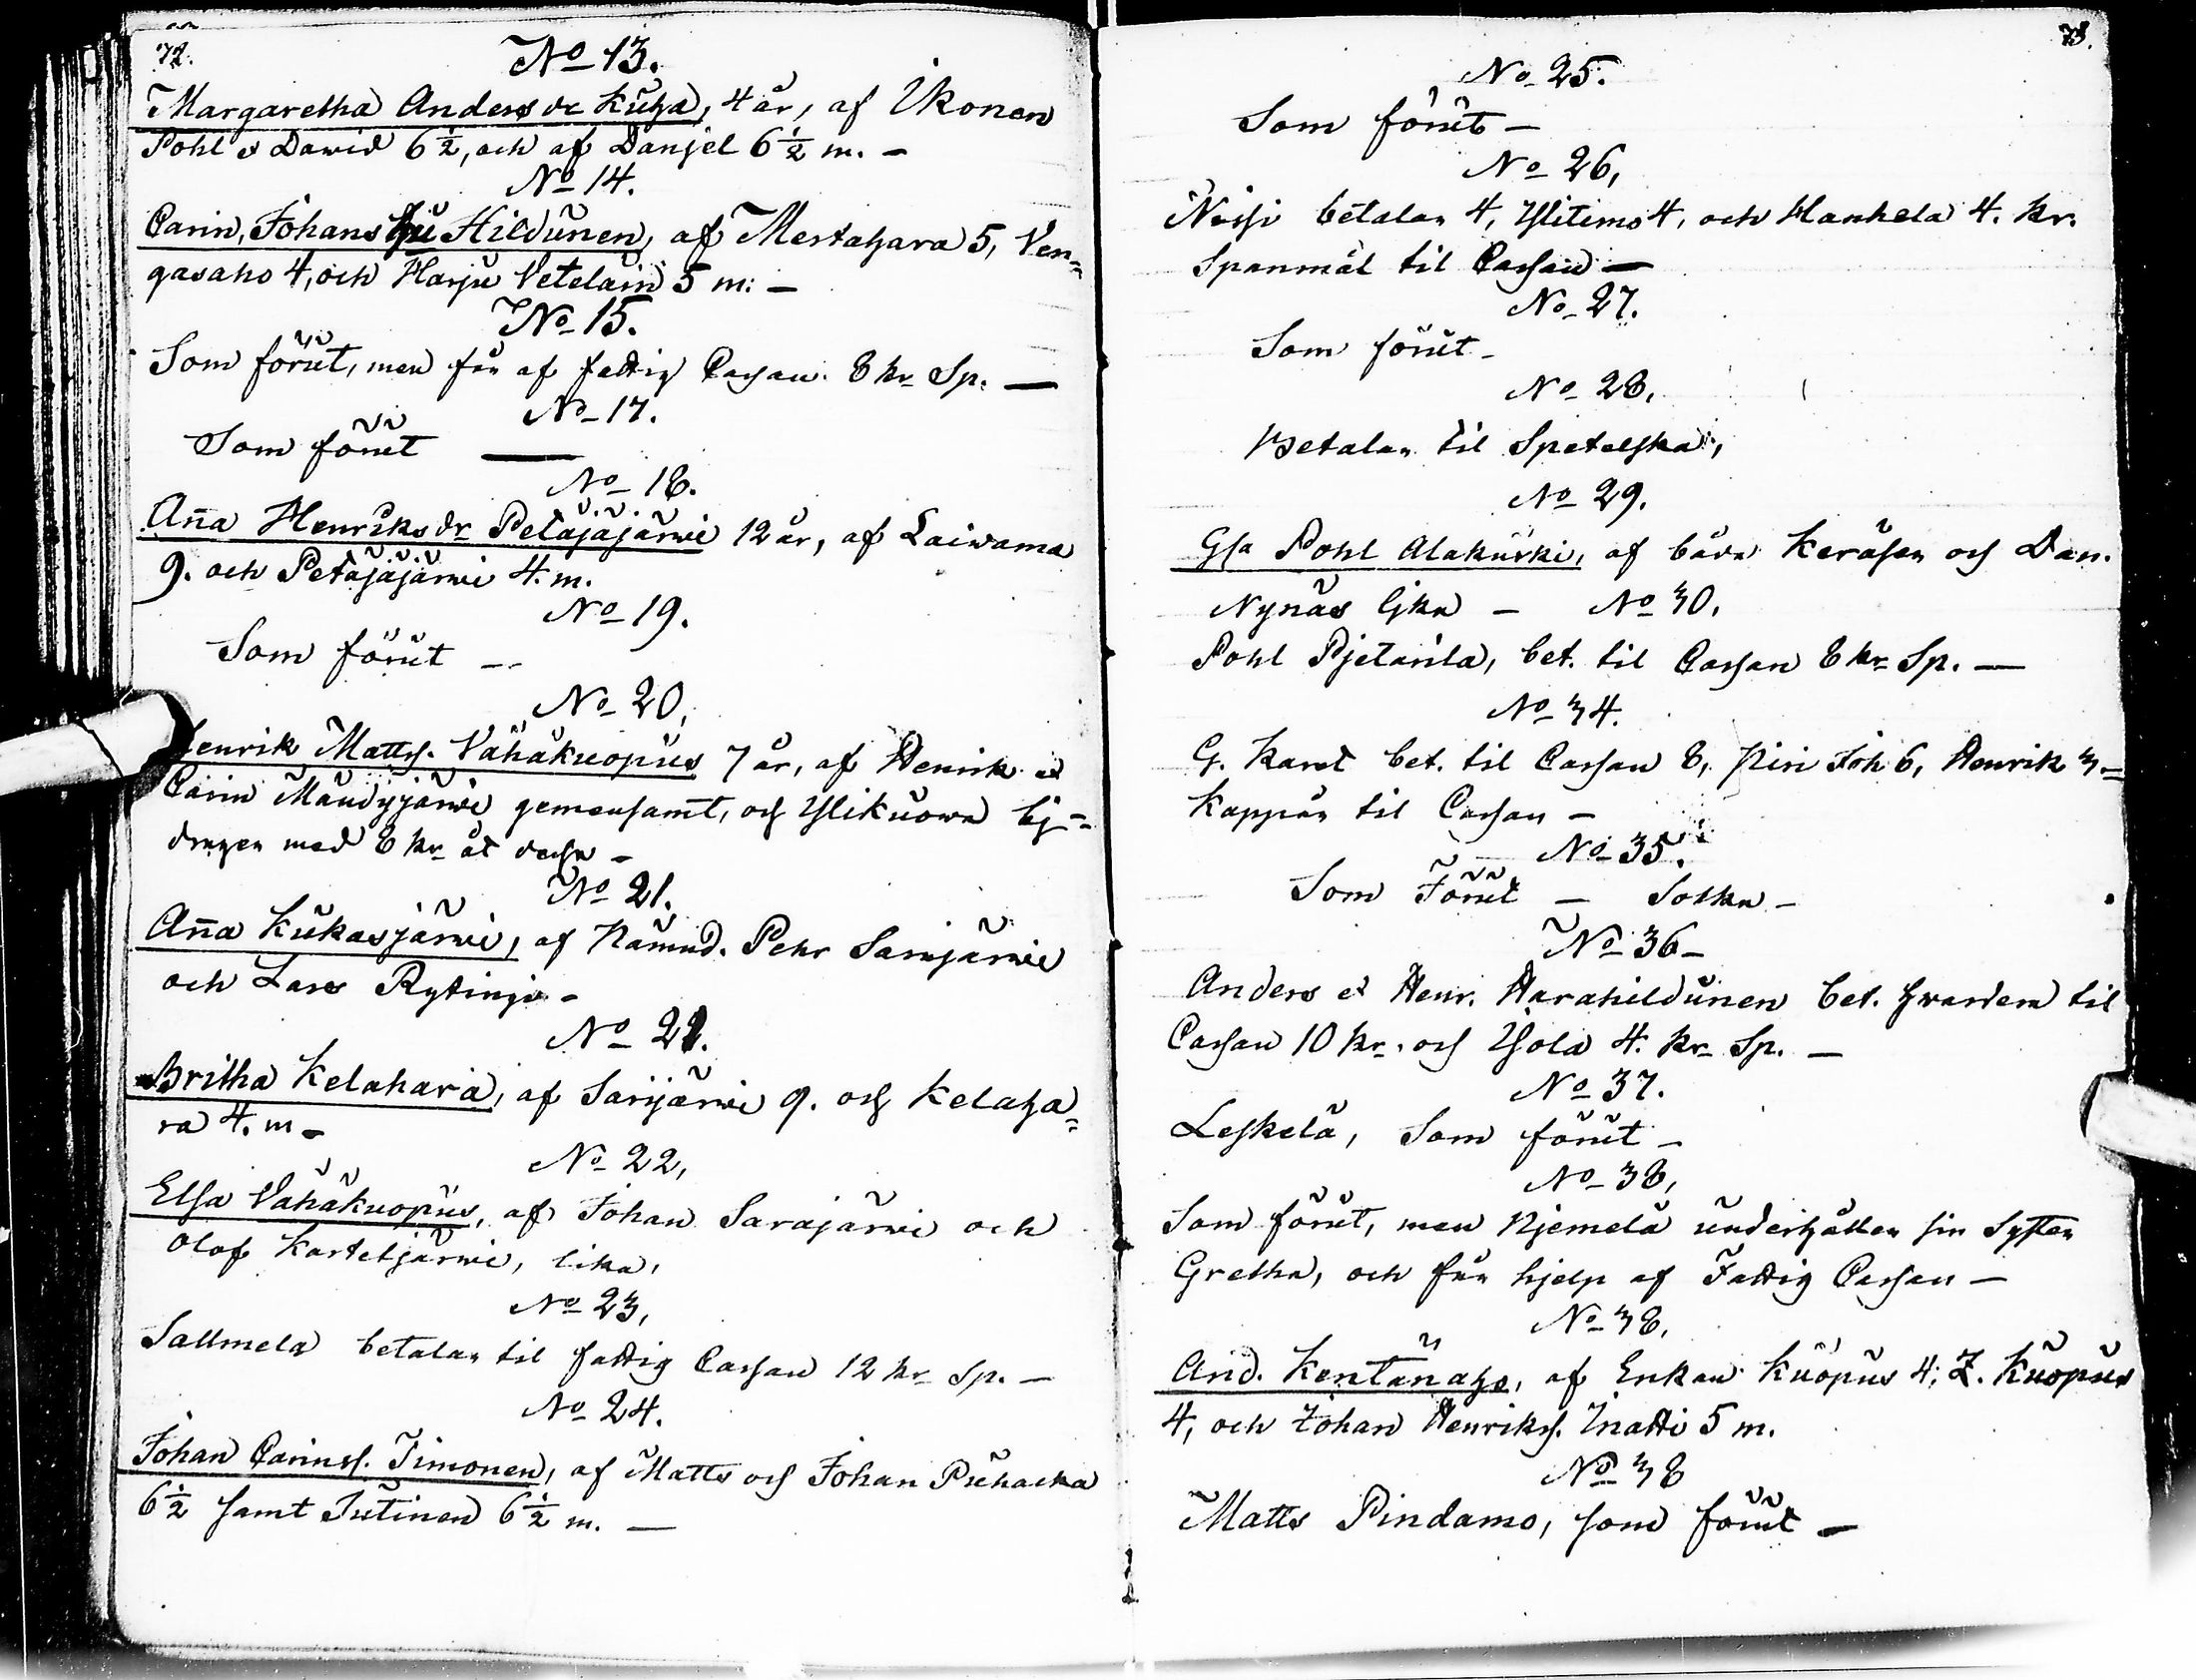 72.
No 13.
Margaretha Anders dr Kuha, 4 år, af Ikonen
Pohl o Dawid 6 1/2, och af Danjel 6 1/2 m. -
No 14.
Carin, Johans hu Hildunen, af Mertahara 5, Ven=
gasaho 4, och Harju Vetelain 5 m: -
No 15.
Som förut, men får af fattig Cassan 8 kr Sp. -
No 17.
Som förut -
No 18.
Ana Henriks dr Petäjäjärwi 12 år, af Laiwama
9. och Petäjäjärwi 4. m.
No 19.
Som förut -
No 20,
Henrik Matts. Vähäkuopus 7 år, af Henrik et
Carin Mändyjärwi gemensamt, och Ylikuowa bij=
drager med 8 kr åt dessa -
No 21.
Ana Kukasjärwi, af Nämnd. Pehr Sarnjärwi
och Lars Rytinji -
No 21.
Britha Kelahara, af Sarijärwi 9. och Kelaha=
ra 4. m -
No 22,
Elsa Vähäkuopus, af Johan Sarajärwi och
Olof Karteljärwi, lika,
No 23,
Sallmela betalar til fattig Cassan 12 kr Sp. -
No 24.
Johan Carins. Timonen, af Matts och Johan Puhacka
6 1/2 samt Tutinen 6 1/2 m. -
73.
No 25.
Som förut -
No 26,
Nissi betalar 4, Ylitimo 4, och Hankela 4. kr.
Spanmål til Cassan -
No 27.
Som förut -
No 28,
Betalar til Spetelska,
No 29.
Gla Pohl Alakurki, af båda Keräsen och Dan.
Nynäs lika - No 30.
Pohl Pjetarila, bet. til Cassan 8 kr Sp. -
No 34.
G. Karet bet. til Cassan 8, Piri Joh 6, Henrik 3 =
Kappar til Cassan -
No 35.
Som Förut - Sotka -
No 36 -
Anders et Henr. Harahildunen bet. hwardera til
Cassan 10 kr. och Ysola 4. kr Sp. -
No 37.
Leskelä, Som förut -
No 38,
Som förut, men Njemelä underhåller sin Syster
Gretha, och får hjelp af Fattig Cassan -
No 38,
And. Kentänaho, af Enkan Kuopus 4, Z. Kuopus
4, och Johan Henriks. Inatti 5 m.
No 38
Matts Pindamo, som förut -